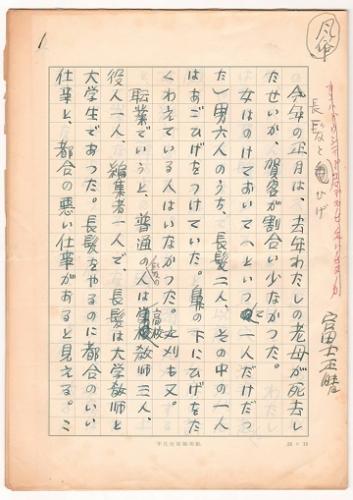 長髪とひげ
富士正晴
今年の正月は、去年わたしの老母が死去し
たせいか、賀客が割合い少なかった。
女はのけておいて(といって一人だけだっ
た)男六人のうち、長髪二人、その中の一人
はあごひげをつけていた。鼻の下にひげをた
くわえている人はいなかった。刈も又。
職業でいうと、普通の人は高校教師三人、
役人一人、編集者一人で、長髪は大学教師と
大学生であった。長髪をやるのに都合のいい
仕事と、都合の悪い仕事があると見える。こ
1